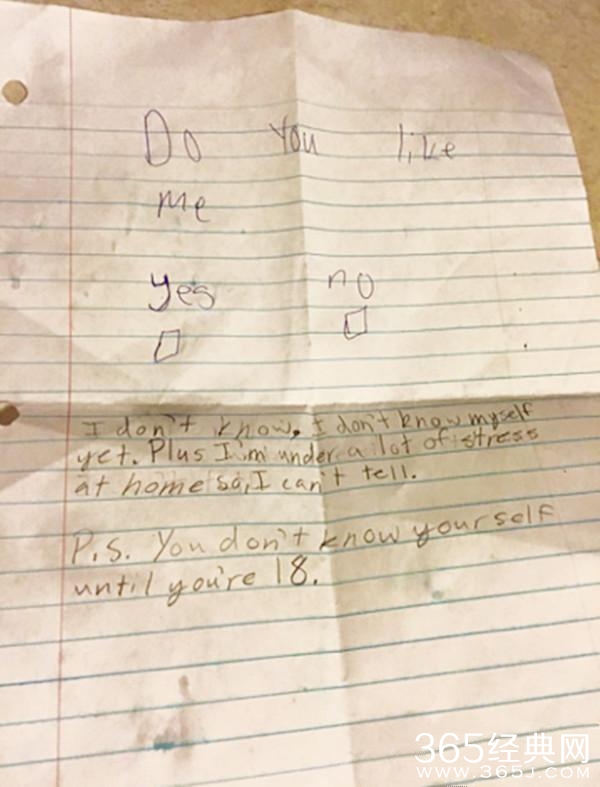 Do You like
me
yes no
I don't know. I don't know myself
yet. Plus I'm under a lot of stress
at home so, I can't tell.
P.S. You don't know yourself
until you're 18.
365经典网
www.365J.com